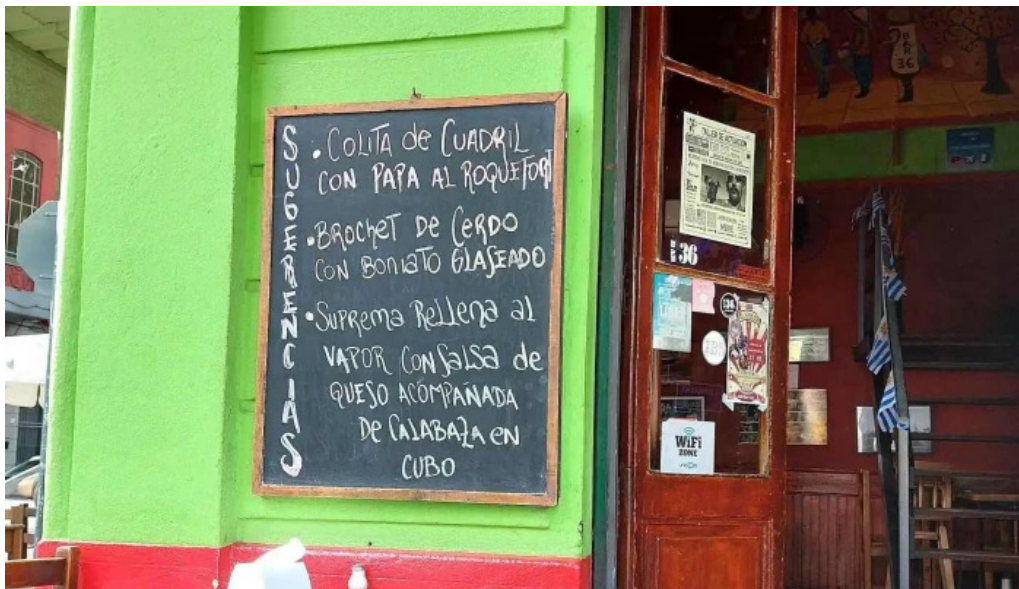 SUGERENCIAS
• COLITA de CUADRIL
CON PAPA AL ROQUEFORT
• BROCHET DE CERDO
CON BONIATO GLASEADO
• SUPREMA Rellena al
VAPOR CON SALSA de
QUESO ACOMPAÑADA
De CALABAZA EN
CUBO
TALLER DE ACTUACIÓN
BAR 36
36
BAR
36
WiFi
ZONE